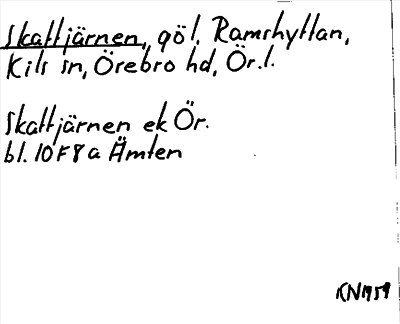 Skattjärnen, göl, Ramshyttan,
Kils sn, Örebro hd, Ör.l.
Skattjärnen ek Ör.
bl. 10F8a Ämten
KN1959